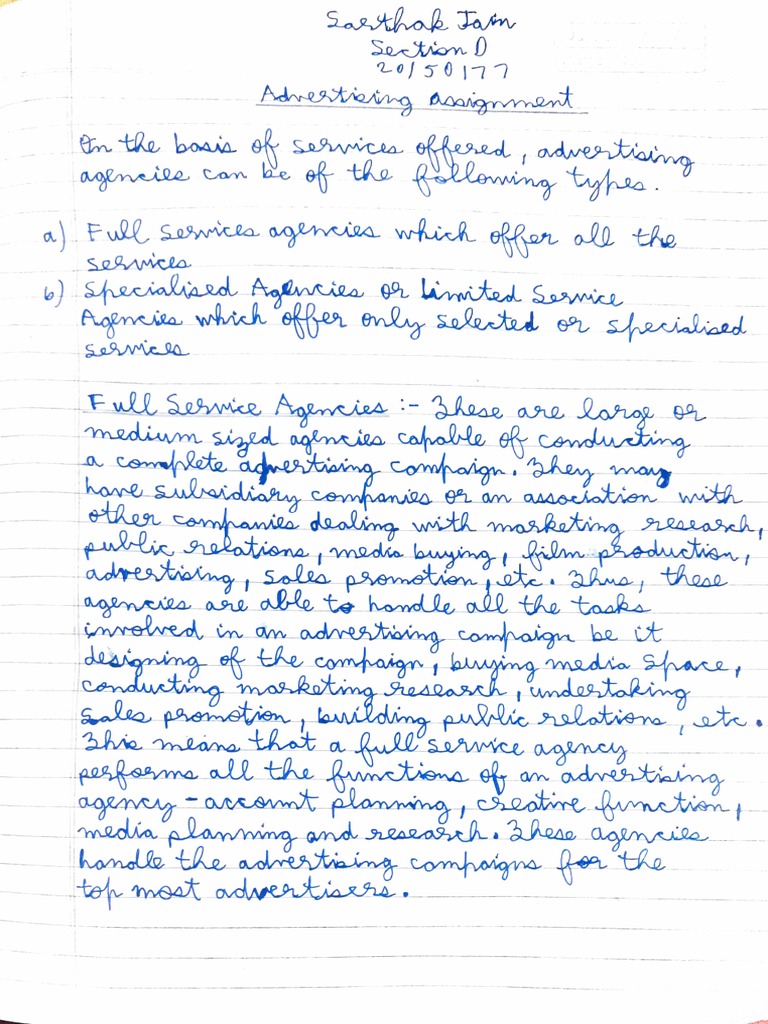 Sarthak Jain
Section D
20/50177
Advertising assignment
On the basis of services offered, advertising
agencies can be of the following types.
a) Full Services agencies which offer all the
services
b) Specialised Agencies or Limited Service
Agencies which offer only selected or specialised
services
Full Service Agencies :- These are large or
medium sized agencies capable of conducting
a complete advertising campaign. They may
have subsidiary companies or an association with
other companies dealing with marketing research,
public relations, media buying, film production,
advertising, sales promotion, etc. Thus, these
agencies are able to handle all the tasks
involved in an advertising campaign be it
designing of the campaign, buying media space,
conducting marketing research, undertaking
sales promotion, building public relations, etc.
This means that a full service agency
performs all the functions of an advertising
agency - account planning, creative function,
media planning and research. These agencies
handle the advertising campaigns for the
top most advertisers.